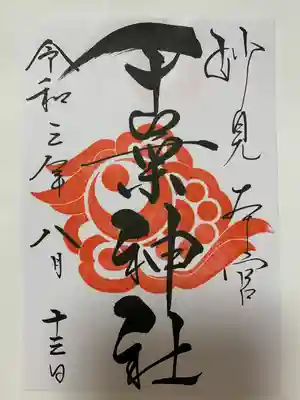 妙見本宮
千葉神社
令和三年八月十三日